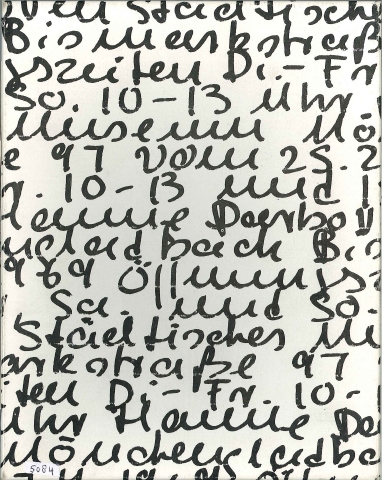 Städtisch
Bismarkstraß
szeiten Di.-Fr
So. 10-13 Uhr
Museum Mö
e 97 vom 25.2
r. 10-13 und 1
Hanne Darbov
nchengladbach Bis
969 Öffnungsz
Sa. und So.
Städtisches M
arkstraße 97
iten Di.-Fr. 10-
Uhr Hanne Da
Mönchengladba
5084